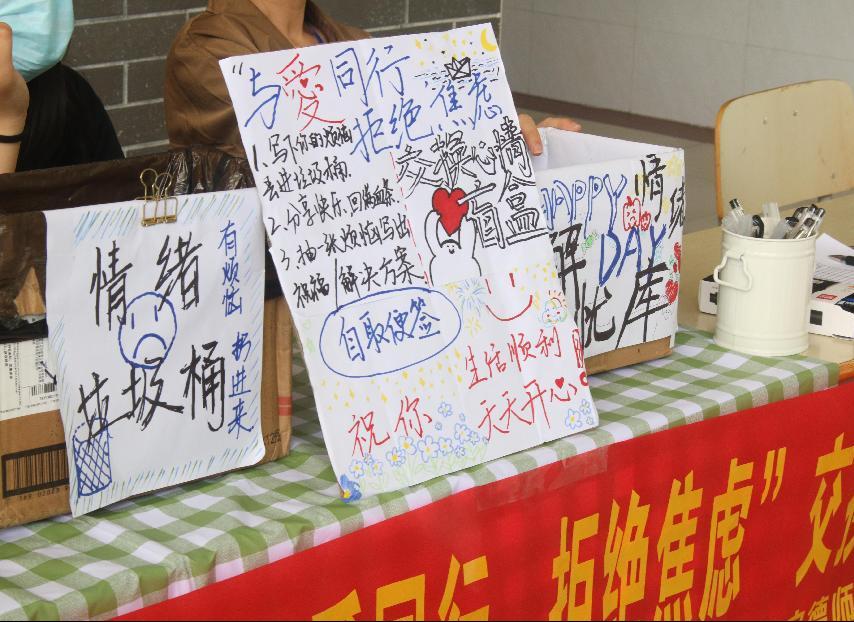 情绪
垃圾桶
有烦恼 扔进来
"与爱同行
拒绝焦虑
1. 写下你的烦恼
丢进垃圾桶.
2. 分享快乐,回满血条
3. 抽一张烦恼写出
祝福/解决方案
交换心情
盲盒
自取便签
祝你
生活顺利
天天开心
HAPPY
DAY
情绪
解忧库
同行 拒绝焦虑"交
德师